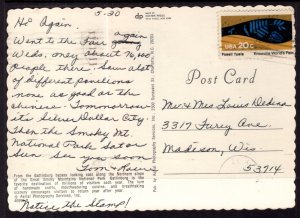 5-30
Hi Again,
again
Went to the Fair
Weds. only about 76,000
people there. Saw lots
of different pavilions
none as good as the
chinese. Tomorrow
it's Silver Dollar City
Then the Smoky Mt.
National Park Sat or
Sun. See you soon
Tom + Elaine
From the Gatlinburg bypass looking east along the Northern slope
of the Great Smoky Mountains National Park Gatlinburg is the
favorite destination of millions of visitors each year. The lure
of handmade crafts, mouthwatering cuisine, and breathtaking
views encourages visitors to return year after year.
© Aerial Photography Services, Inc.
Notice the Stamp!
Fossil fuels
USA 20c
Knoxville World's Fair
Post Card
Mr & Mrs Louis Dedina
3317 Furey Ave.
Madison, Wis
53714